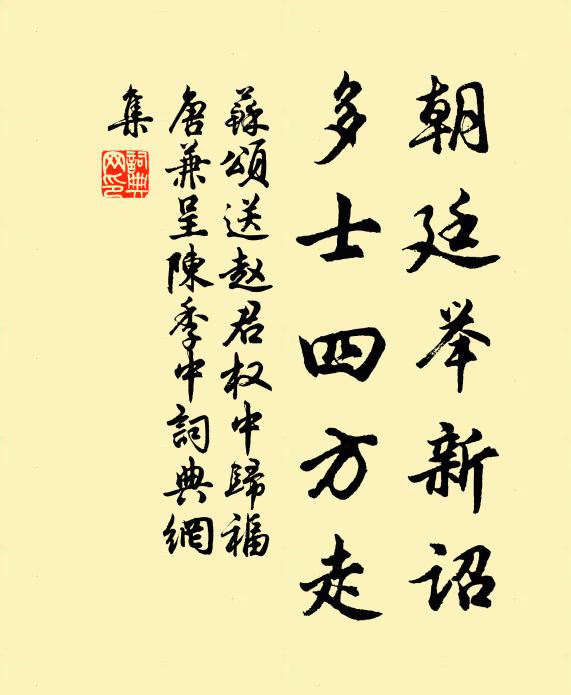 朝廷举新诏
多士四方走
蘇頌送赵君权中歸福
唐兼呈陳季中詞典網
集
詞典
网印